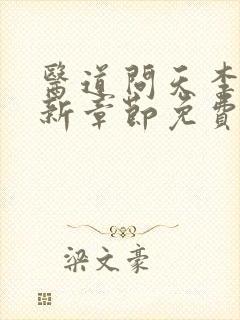 醫道問天李
新章節免費
梁文豪